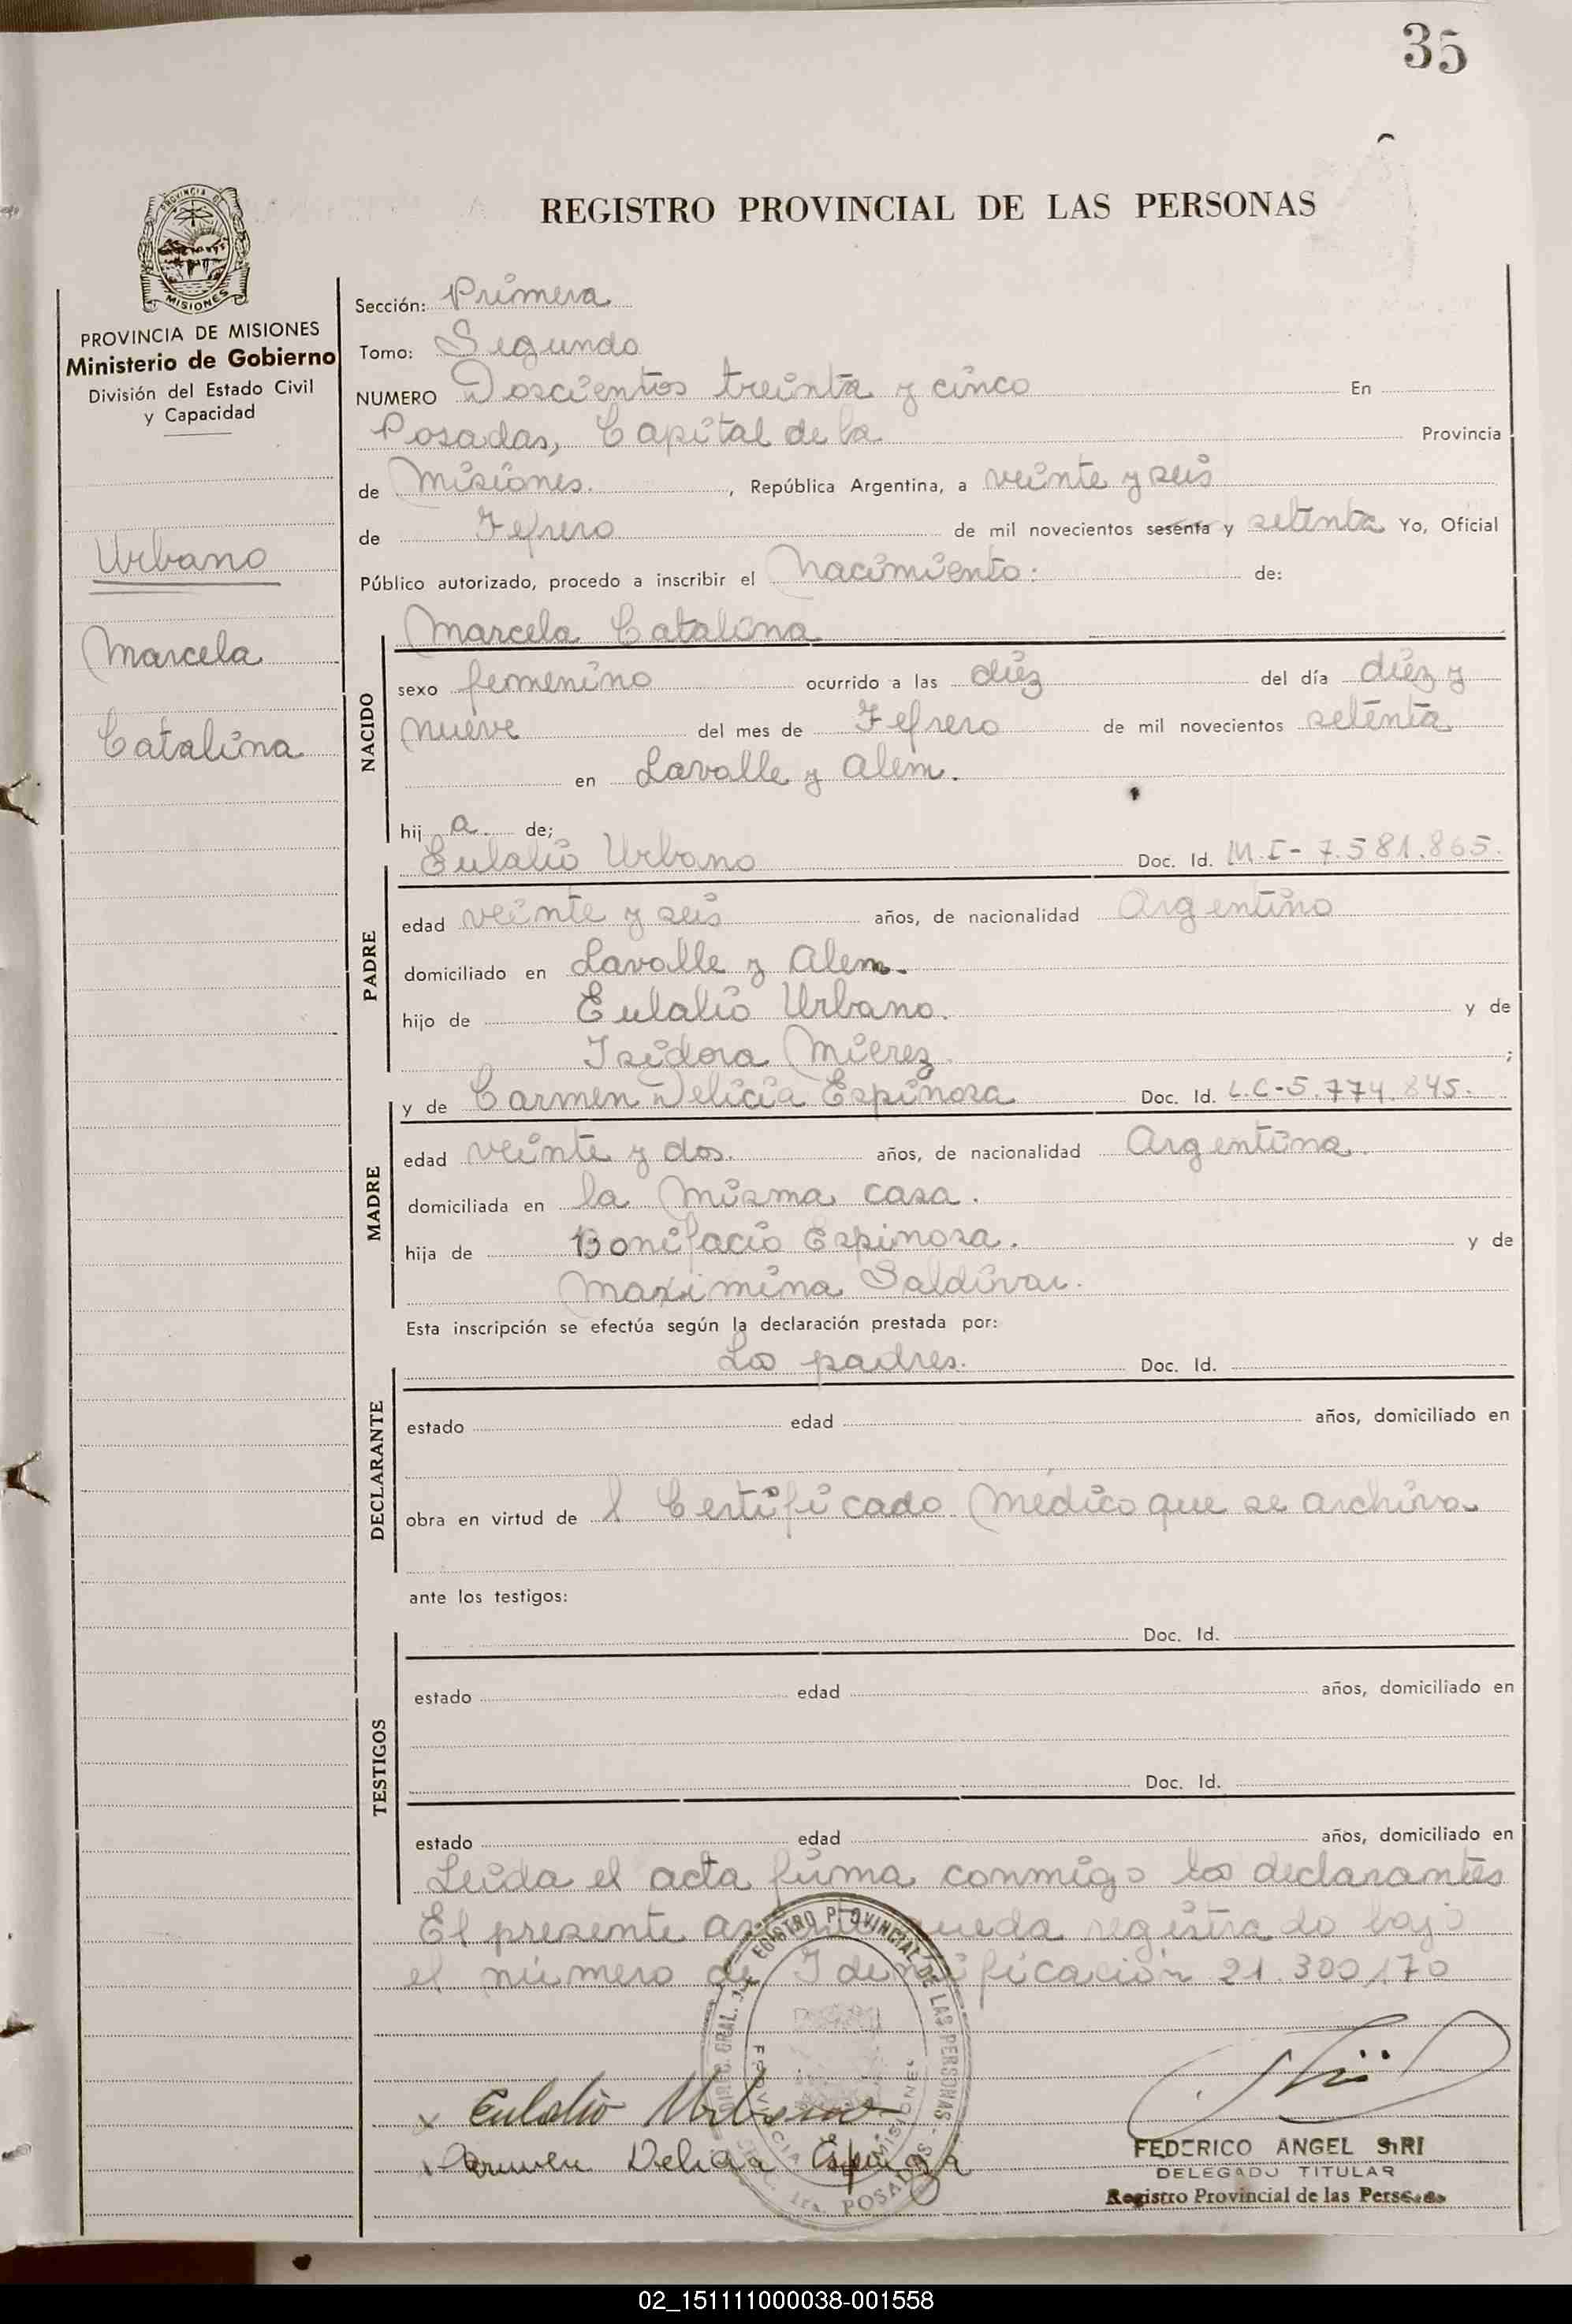 35
REGISTRO PROVINCIAL DE LAS PERSONAS
PROVINCIA DE
MISIONES
PROVINCIA DE MISIONES
Ministerio de Gobierno
División del Estado Civil
y Capacidad
Urbano
Marcela
Catalina
Sección: Primera
Tomo: Segundo
NUMERO Doscientos treinta y cinco En
Posadas, Capital de la Provincia
de Misiones. , República Argentina, a veinte y seis
de Fefrero de mil novecientos sesenta y setenta Yo, Oficial
Público autorizado, procedo a inscribir el Nacimiento: de:
Marcela Catalina
NACIDO
sexo femenino ocurrido a las diez del día diez y
nueve del mes de Fefrero de mil novecientos setenta
en Lavalle y Alem.
hij a. de;
Eulalio Urbano Doc. Id. M.I- 7.581.865.
PADRE
edad veinte y seis años, de nacionalidad Argentino
domiciliado en Lavalle y Alem.
hijo de Eulalio Urbano. y de
Isidora Mierez ;
y de Carmen Delicia Espinosa Doc. Id. L.C-5.774.845.
MADRE
edad veinte y dos. años, de nacionalidad Argentina.
domiciliada en la misma casa.
hija de Bonifacio Espinosa. y de
Maximina Saldivar.
Esta inscripción se efectúa según la declaración prestada por:
Los padres. Doc. Id.
DECLARANTE
estado edad años, domiciliado en
obra en virtud de l Certificado Médico que se archiva
ante los testigos:
Doc. Id.
TESTIGOS
estado edad años, domiciliado en
Doc. Id.
estado edad años, domiciliado en
Leida el acta firma conmigo los declarantes
El presente queda registrado bajo
el número de Identificación 21.300,170
REGISTRO PROVINCIAL DE LAS PERSONAS
POSADAS
Eulalio Urbano
Carmen Delicia Espinosa
FEDERICO ANGEL SIRI
DELEGADO TITULAR
Registro Provincial de las Personas
02_151111000038-001558